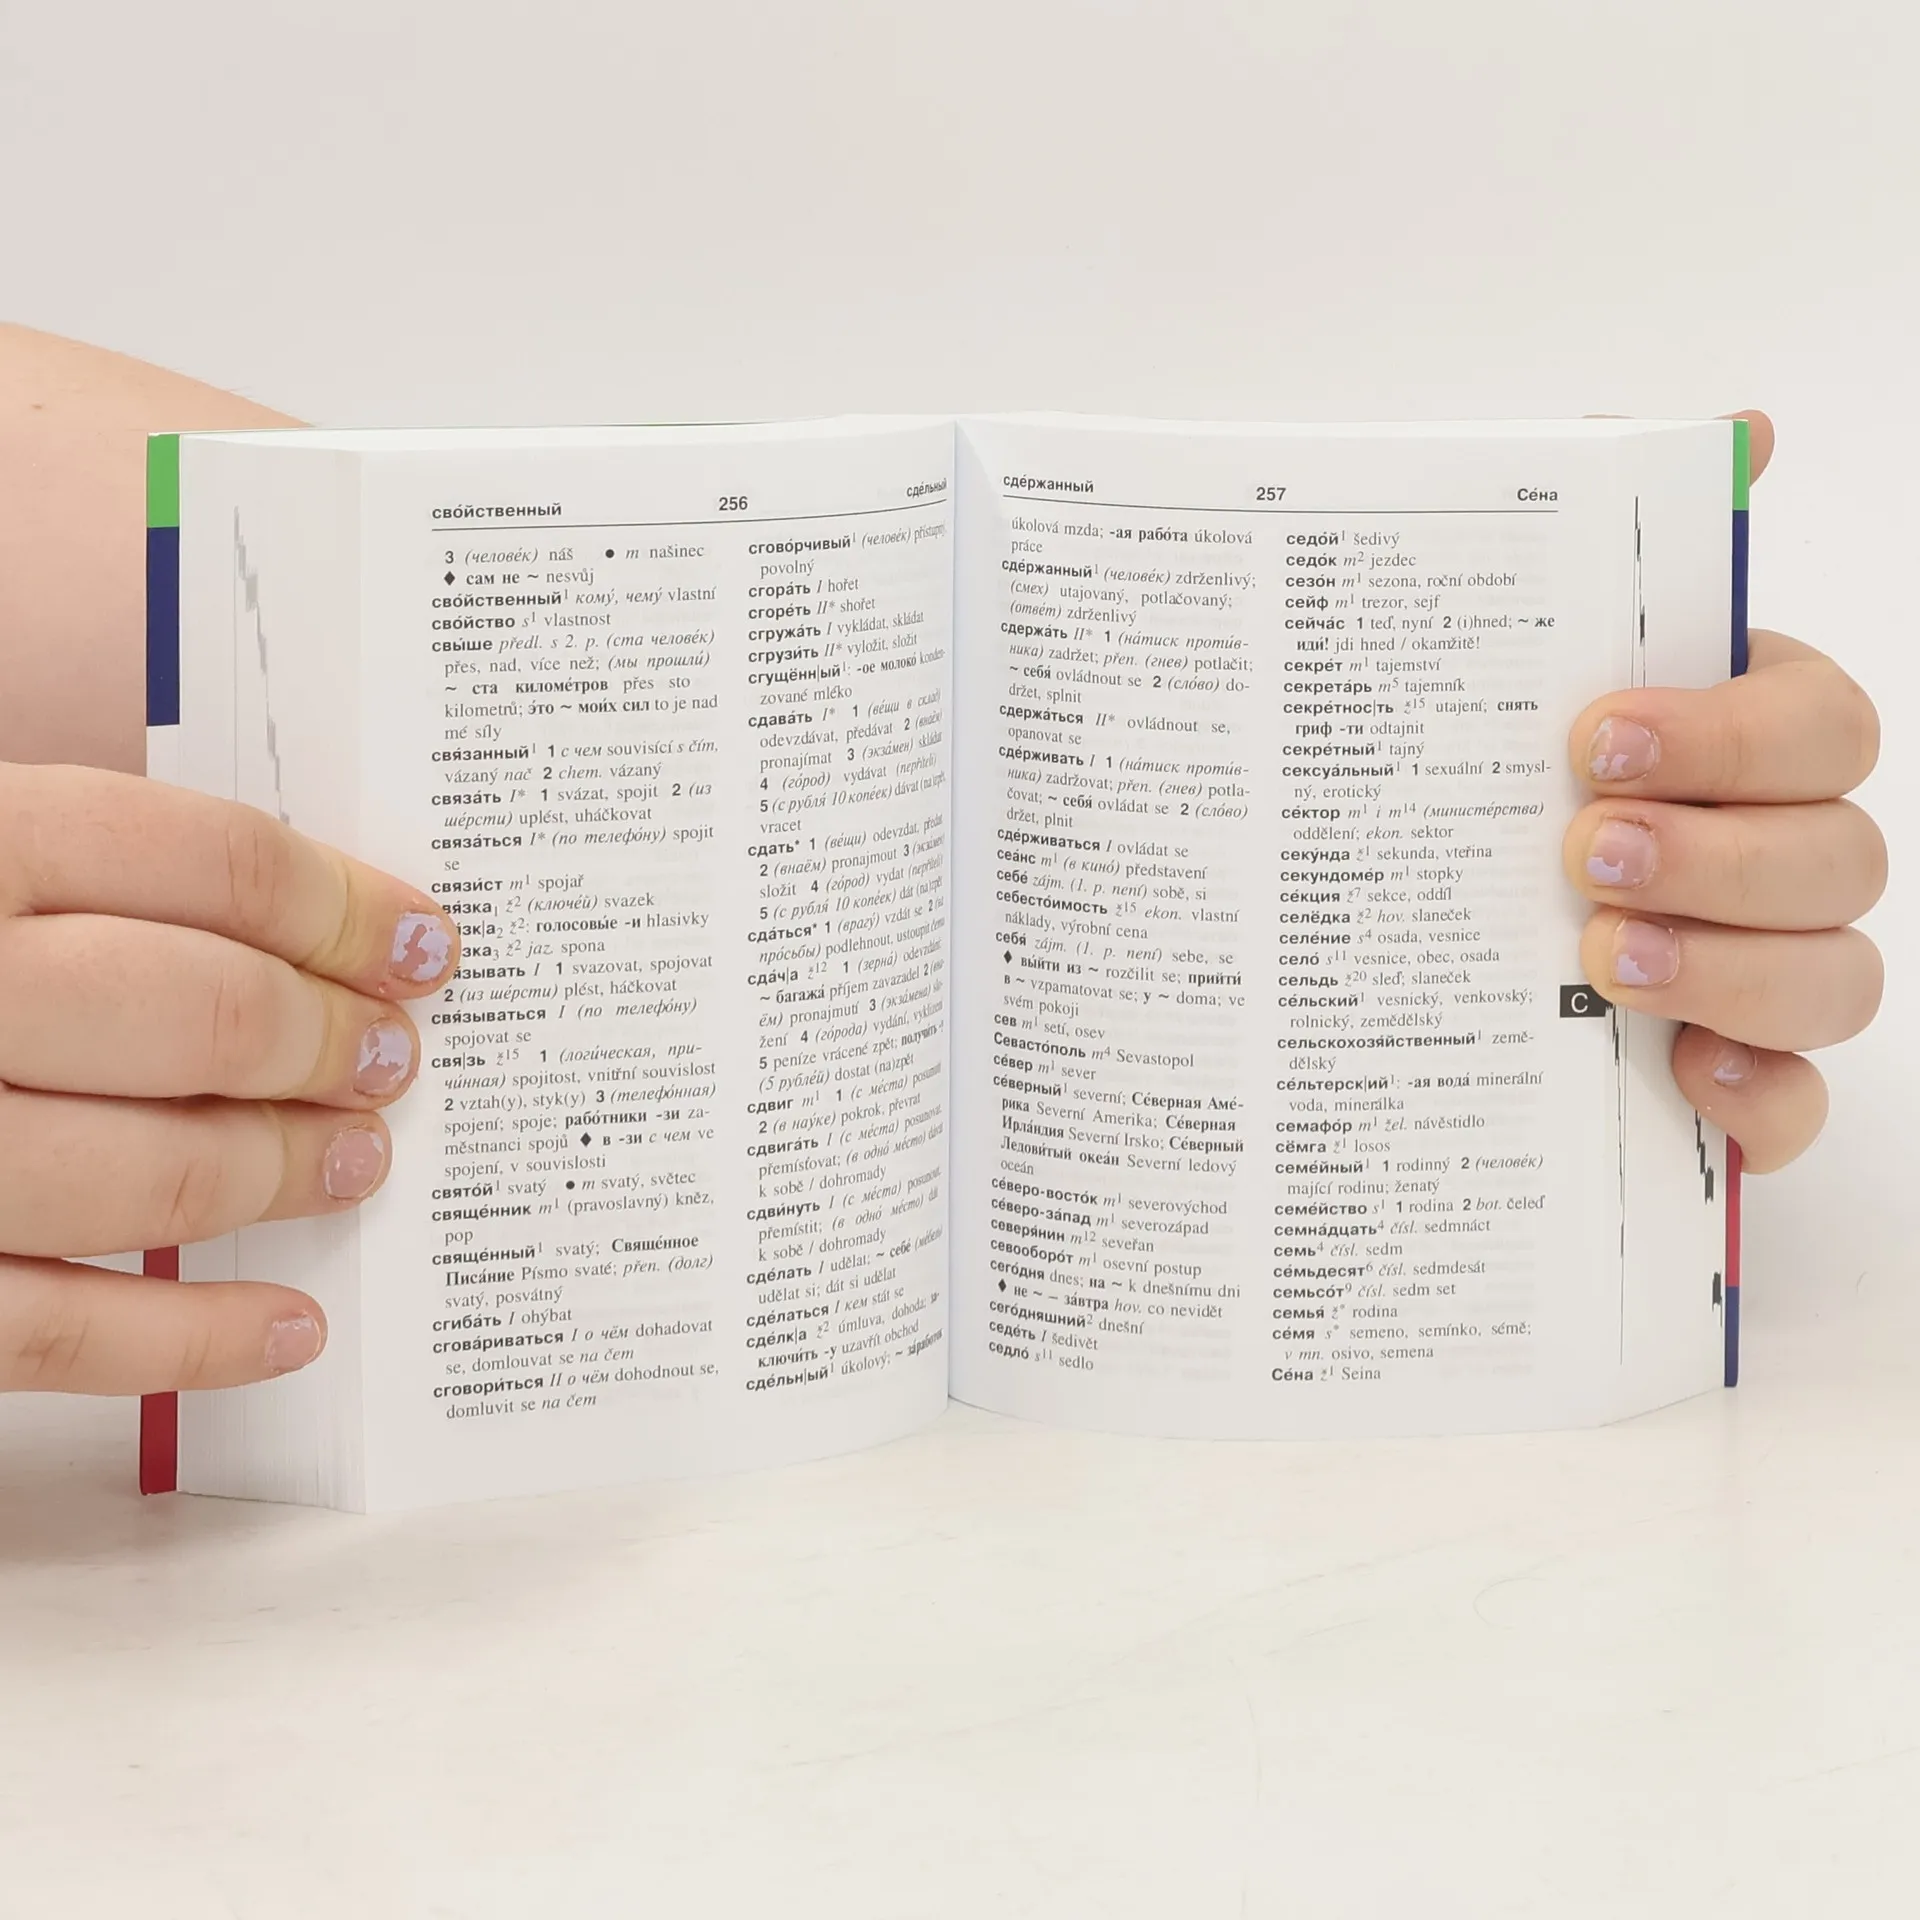 свóйственный 256 сдéльный
3 (человéк) náš ● m našinec
♦ сам не ~ nesvůj
свóйственный¹ комý, чемý vlastní
свóйство s¹ vlastnost
свы́ше předl. s 2. p. (ста человéк)
přes, nad, více než; (мы прошли́)
~ ста киломéтров přes sto
kilometrů; э́то ~ мои́х сил to je nad
mé síly
свя́занный¹ 1 с чем souvisící s čím,
vázaný nač 2 chem. vázaný
связáть I* 1 svázat, spojit 2 (из
шéрсти) uplést, uháčkovat
связáться I* (по телефóну) spojit
se
связи́ст m¹ spojař
вя́зка₁ ž² (ключéй) svazek
я́зк|а₂ ž²: голосовы́е -и hlasivky
зка₃ ž² jaz. spona
я́зывать I 1 svazovat, spojovat
2 (из шéрсти) plést, háčkovat
свя́зываться I (по телефóну)
spojovat se
свя|зь ž¹⁵ 1 (логи́ческая, при-
чи́нная) spojitost, vnitřní souvislost
2 vztah(y), styk(y) 3 (телефóнная)
spojení; spoje; рабóтники -зи za-
městnanci spojů ♦ в -зи с чем ve
spojení, v souvislosti
святóй¹ svatý ● m svatý, světec
свящéнник m¹ (pravoslavný) kněz,
pop
свящéнный¹ svatý; Свящéнное
Писáние Písmo svaté; přen. (долг)
svatý, posvátný
сгибáть I ohýbat
сговáриваться I о чём dohadovat
se, domlouvat se na čem
сговори́ться II о чём dohodnout se,
domluvit se na čem
сговóрчивый¹ (человéк) přístupný,
povolný
сгорáть I hořet
сгорéть II* shořet
сгружáть I vykládat, skládat
сгрузи́ть II* vyložit, složit
сгущённ|ый¹: -ое молокó konden-
zované mléko
сдавáть I* 1 (вéщи в склад)
odevzdávat, předávat 2 (внаём)
pronajímat 3 (экзáмен) skládat
4 (гóрод) vydávat (nepříteli)
5 (с рубля́ 10 копéек) dávat (na)zpět,
vracet
сдать* 1 (вéщи) odevzdat, předat
2 (внаём) pronajmout 3 (экзáмен)
složit 4 (гóрод) vydat (nepříteli)
5 (с рубля́ 10 копéек) dát (na)zpět
сдáться* 1 (врагý) vzdát se 2 (на
прóсьбы) podlehnout, ustoupit čemu
сдáч|а ž¹² 1 (зернá) odevzdání;
~ багажá příjem zavazadel 2 (вна-
ём) pronajmutí 3 (экзáмена) slo-
žení 4 (гóрода) vydání, vyklizení
5 peníze vrácené zpět; получи́ть -у
(5 рублéй) dostat (na)zpět
сдвиг m¹ 1 (с мéста) posunutí
2 (в наýке) pokrok, převrat
сдвигáть I (с мéста) posunovat,
přemísťovat; (в однó мéсто) dávat
k sobě / dohromady
сдви́нуть I (с мéста) posunout,
přemístit; (в однó мéсто) dát
k sobě / dohromady
сдéлать I udělat; ~ себé (мéбель)
udělat si; dát si udělat
сдéлаться I кем stát se
сдéлк|а ž² úmluva, dohoda; за-
ключи́ть -у uzavřít obchod
сдéльн|ый¹ úkolový; ~ зáработок
сдéржанный 257 Сéна
úkolová mzda; -ая рабóта úkolová
práce
сдéржанный¹ (человéк) zdrženlivý;
(смех) utajovaný, potlačovaný;
(отвéт) zdrženlivý
сдержáть II* 1 (нáтиск проти́в-
ника) zadržet; přen. (гнев) potlačit;
~ себя́ ovládnout se 2 (слóво) do-
držet, splnit
сдержáться II* ovládnout se,
opanovat se
сдéрживать I 1 (нáтиск проти́в-
ника) zadržovat; přen. (гнев) potla-
čovat; ~ себя́ ovládat se 2 (слóво)
držet, plnit
сдéрживаться I ovládat se
сеáнс m¹ (в кинó) představení
себé zájm. (1. p. není) sobě, si
себестóимость ž¹⁵ ekon. vlastní
náklady, výrobní cena
себя́ zájm. (1. p. není) sebe, se
♦ вы́йти из ~ rozčílit se; прийти́
в ~ vzpamatovat se; у ~ doma; ve
svém pokoji
сев m¹ setí, osev
Севастóполь m⁴ Sevastopol
сéвер m¹ sever
сéверный¹ severní; Сéверная Амé-
рика Severní Amerika; Сéверная
Ирлáндия Severní Irsko; Сéверный
Ледови́тый океáн Severní ledový
oceán
сéверо-востóк m¹ severovýchod
сéверо-зáпад m¹ severozápad
северя́нин m¹² seveřan
севооборóт m¹ osevní postup
сегóдня dnes; на ~ k dnešnímu dni
♦ не ~ – зáвтра hov. co nevidět
сегóдняшний² dnešní
седéть I šedivět
седлó s¹¹ sedlo
седóй¹ šedivý
седóк m² jezdec
сезóн m¹ sezona, roční období
сейф m¹ trezor, sejf
сейчáс 1 teď, nyní 2 (i)hned; ~ же
иди́! jdi hned / okamžitě!
секрéт m¹ tajemství
секретáрь m⁵ tajemník
секрéтнос|ть ž¹⁵ utajení; снять
гриф -ти odtajnit
секрéтный¹ tajný
сексуáльный¹ 1 sexuální 2 smysl-
ný, erotický
сéктор m¹ i m¹⁴ (министéрства)
oddělení; ekon. sektor
секýнда ž¹ sekunda, vteřina
секундомéр m¹ stopky
сéкция ž⁷ sekce, oddíl
селёдка ž² hov. slaneček
селéние s⁴ osada, vesnice
селó s¹¹ vesnice, obec, osada
сельдь ž²⁰ sleď; slaneček
сéльский¹ vesnický, venkovský;
rolnický, zemědělský
сельскохозя́йственный¹ země-
dělský
сéльтерск|ий¹: -ая водá minerální
voda, minerálka
семафóр m¹ žel. návěstidlo
сёмга ž¹ losos
семéйный¹ 1 rodinný 2 (человéк)
mající rodinu; ženatý
семéйство s¹ 1 rodina 2 bot. čeleď
семнáдцать⁴ čísl. sedmnáct
семь⁴ čísl. sedm
сéмьдесят⁶ čísl. sedmdesát
семьсóт⁹ čísl. sedm set
семья́ ž* rodina
сéмя s* semeno, semínko, sémě;
v mn. osivo, semena
Сéна ž¹ Seina
С